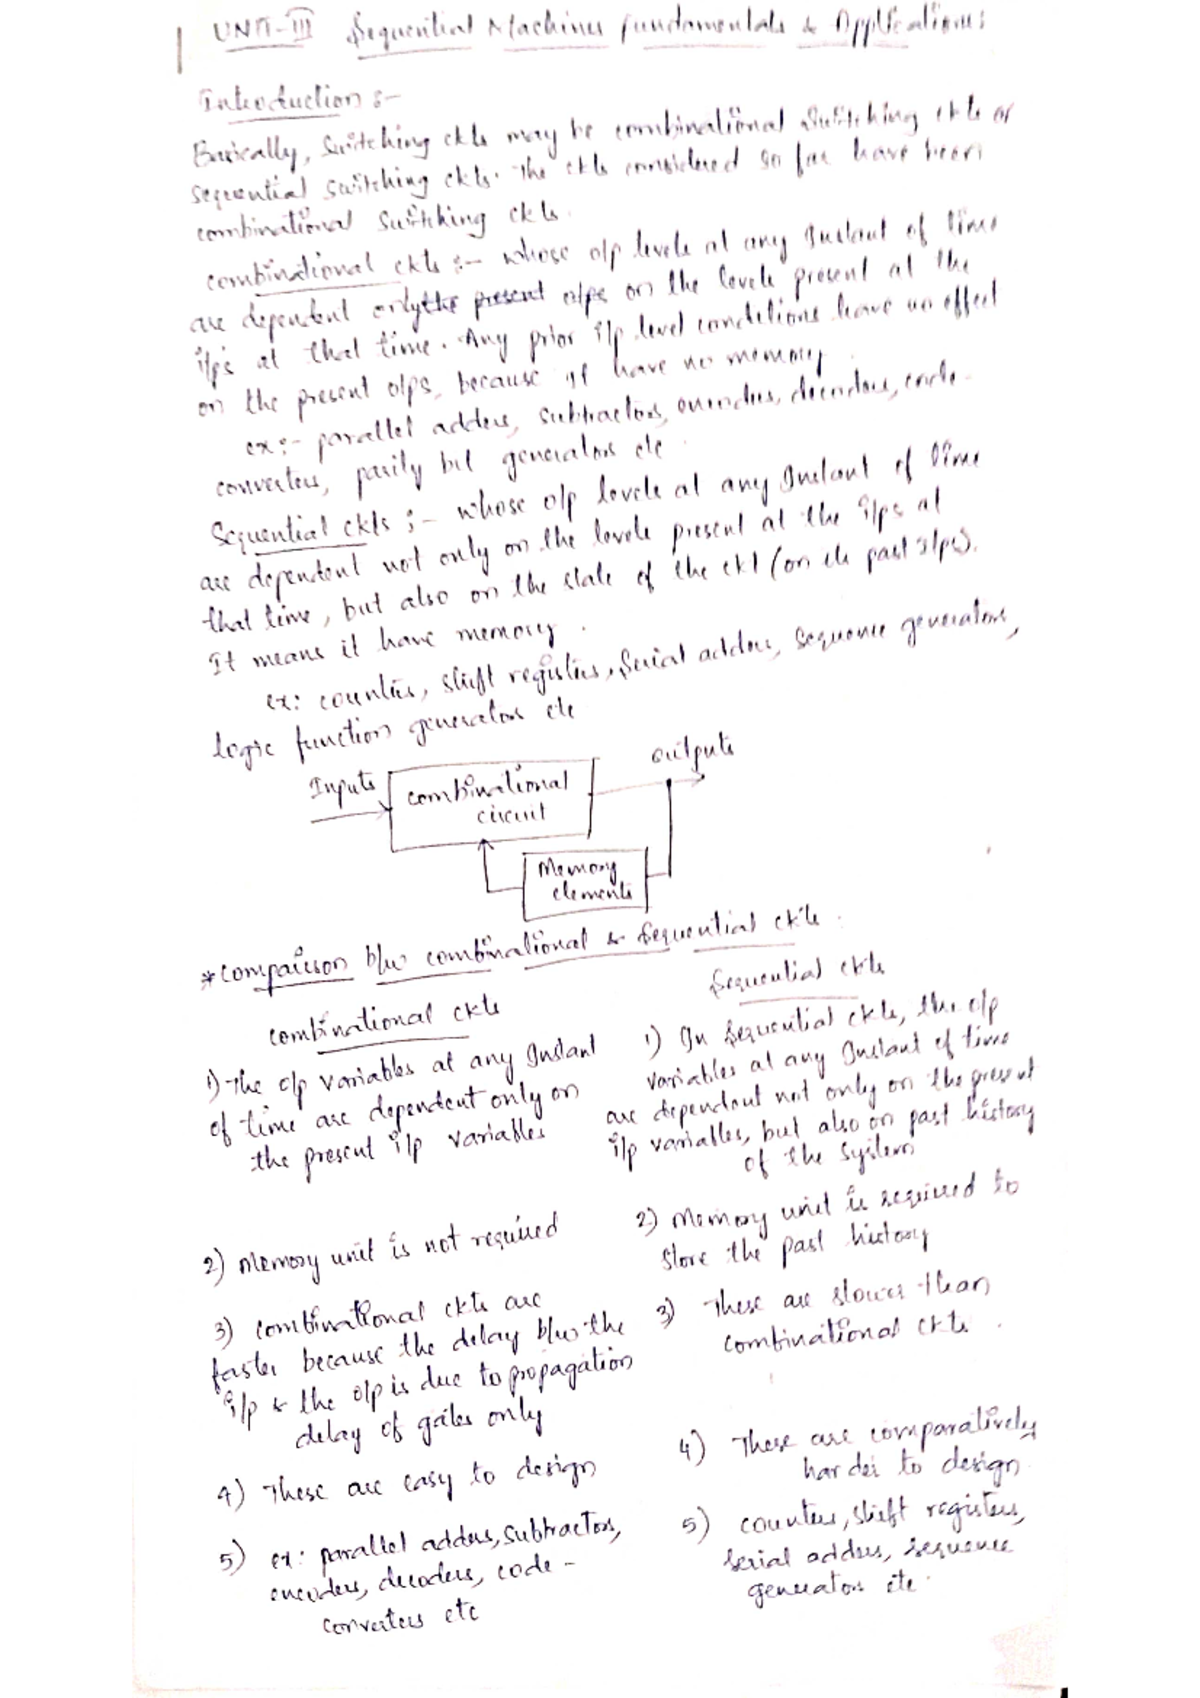 UNIT-III Sequential Machines fundamentals & Applications:
Introduction :-
Basically, Switching ckts may be combinational switching ckts or
sequential switching ckts. The ckts considered so far have been
combinational switching ckts.
combinational ckts :- whose o/p levels at any Instant of time
are dependent only the present o/ps on the levels present at the
i/ps at that time. Any prior i/p level conditions have no effect
on the present o/ps, because it have no memory.
ex:- parallel adders, subtractors, encoders, decoders, code-
converters, parity bit generators etc.
Sequential ckts :- whose o/p levels at any Instant of time
are dependent not only on the levels present at the i/ps at
that time, but also on the state of the ckt (on the past i/ps).
It means it have memory.
ex: counters, shift registers, Serial adders, sequence generators,
logic function generators etc
Inputs
combinational
circuit
outputs
Memory
elements
*comparison b/w combinational & Sequential ckts.
combinational ckts
1) The o/p variables at any Instant
of time are dependent only on
the present i/p variables
2) Memory unit is not required
3) combinational ckts are
faster because the delay b/w the
i/p & the o/p is due to propagation
delay of gates only
4) These are easy to design
5) ex: parallel adders, subtractors,
encoders, decoders, code-
converters etc
Sequential ckts
1) In sequential ckts, the o/p
variables at any Instant of time
are dependent not only on the present
i/p variables, but also on past history
of the system
2) Memory unit is required to
store the past history
3) These are slower than
combinational ckts.
4) These are comparatively
harder to design.
5) counters, shift registers,
serial adders, sequence
generators etc.